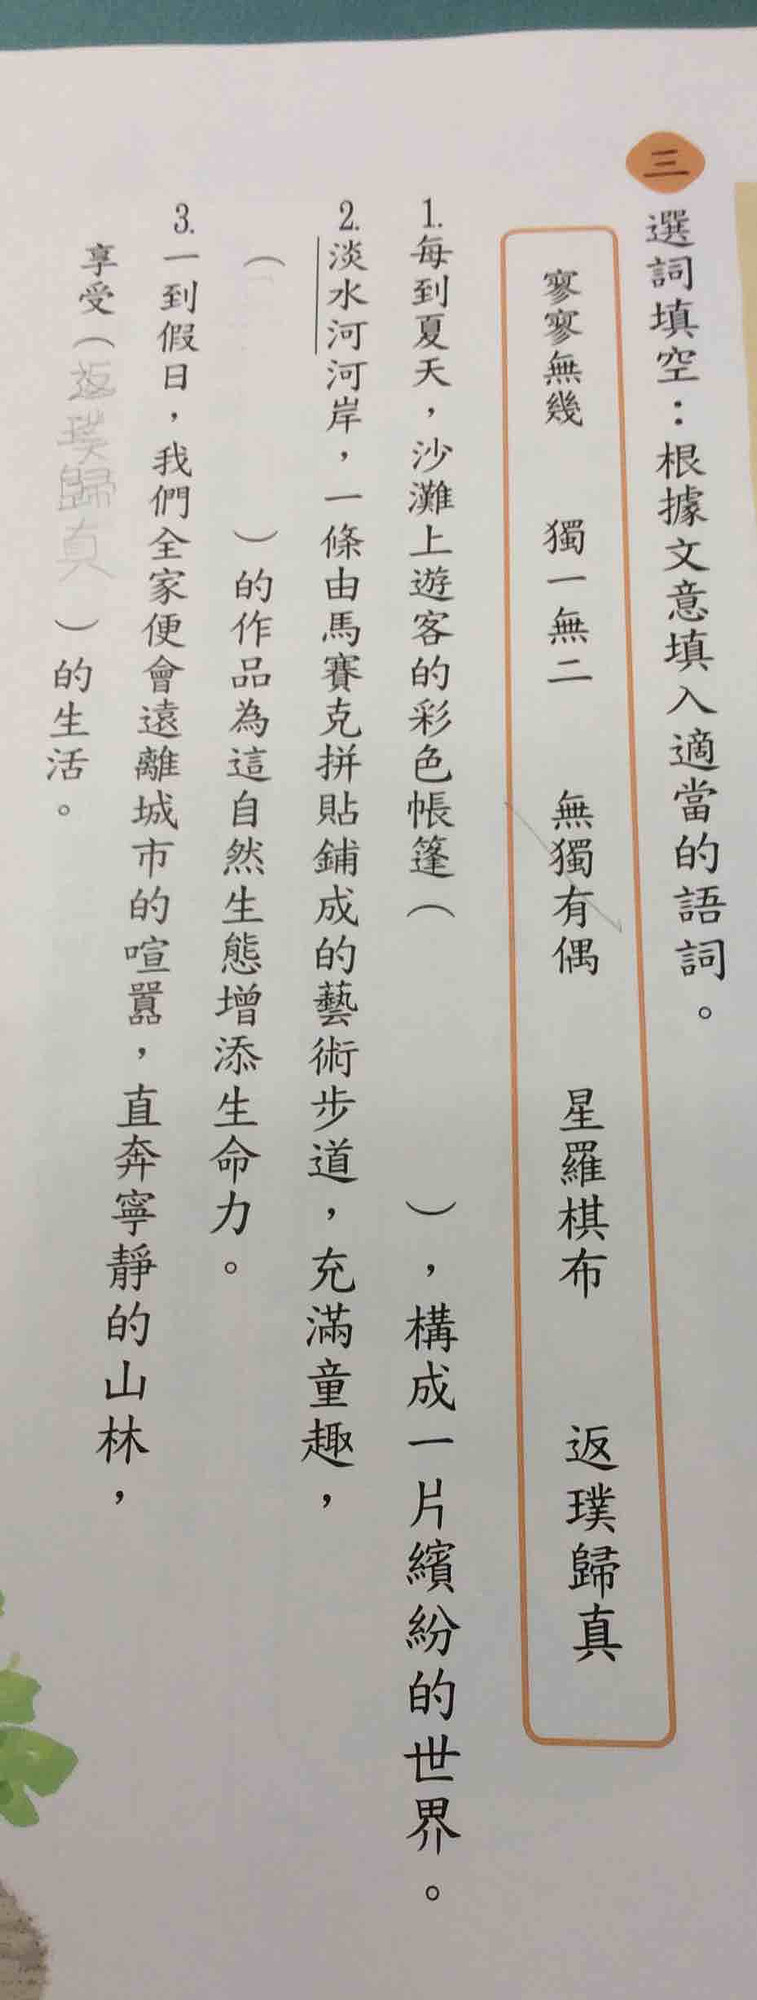 三 選詞填空：根據文意填入適當的語詞。
寥寥無幾 獨一無二 無獨有偶 星羅棋布 返璞歸真
1.每到夏天，沙灘上遊客的彩色帳篷（ ），構成一片繽紛的世界。
2.淡水河河岸，一條由馬賽克拼貼鋪成的藝術步道，充滿童趣，
（ ）的作品為這自然生態增添生命力。
3.一到假日，我們全家便會遠離城市的喧囂，直奔寧靜的山林，
享受（返璞歸真）的生活。